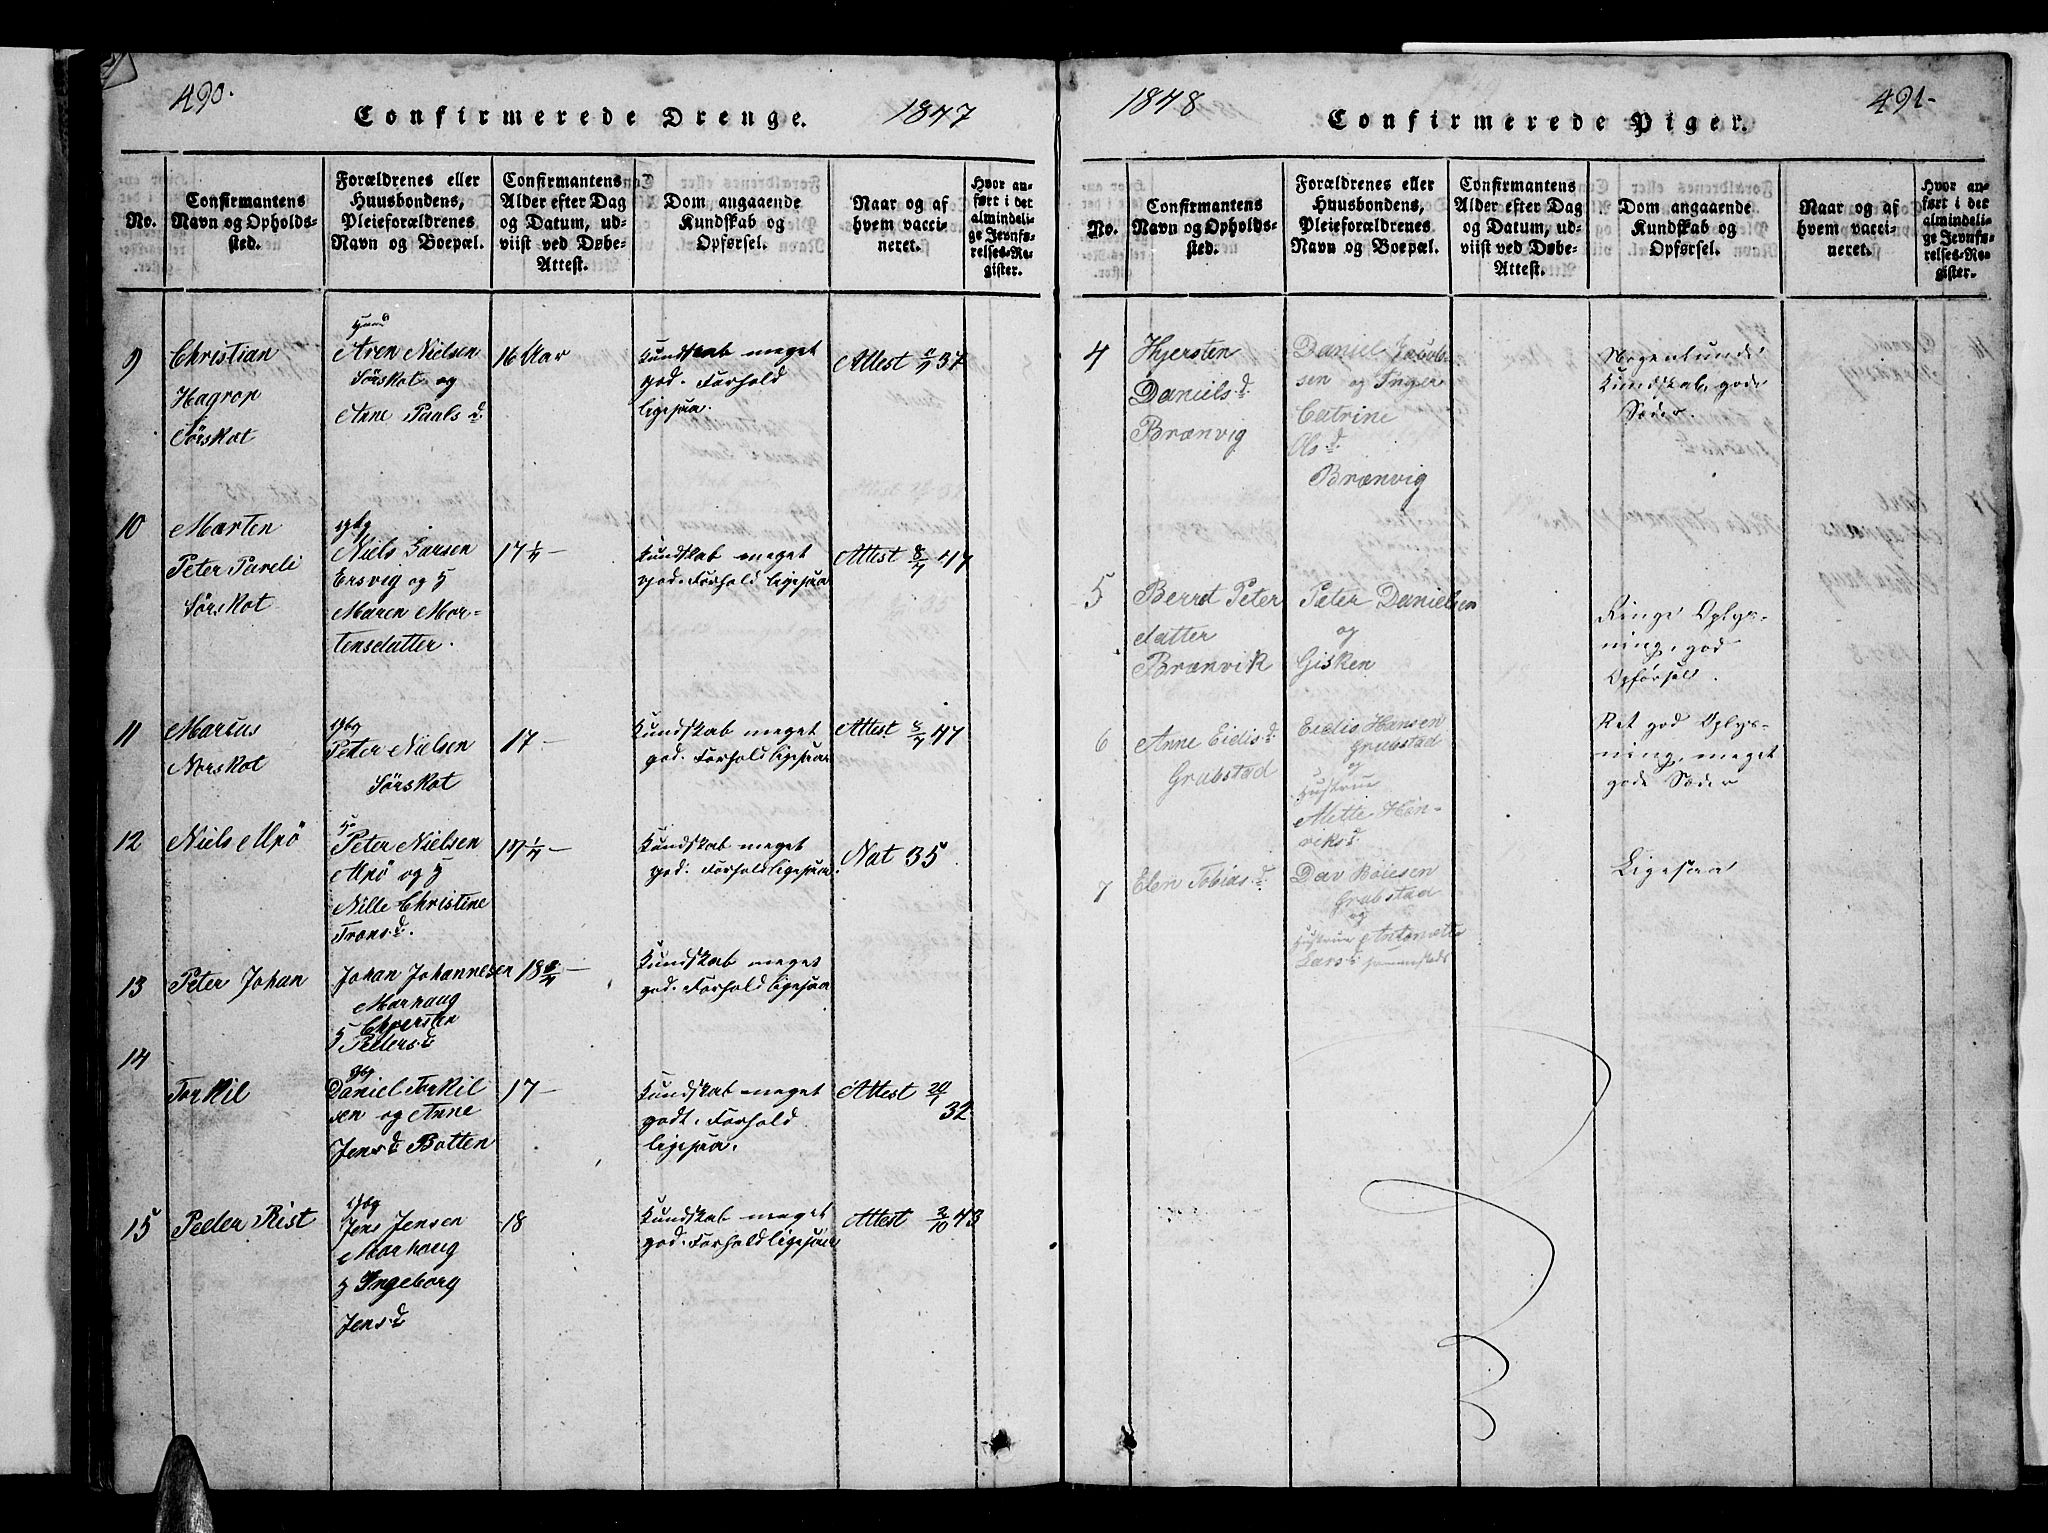 490.
Confirmerede Drenge.
1847
No.
Confirmantens
Navn og Opholds-
sted.
Forældrenes eller
Huusbondens,
Pleieforældrenes
Navn og Boepæl.
Confirmantens
Alder efter Dag
og Datum, ud-
viist ved Døbe-
Attest.
Dom angaaende
Kundskab og
Opførsel.
Naar og af
hvem vacci-
neret.
Hvor an-
ført i det
almindeli-
ge Jevnfø-
relses-Re-
gister.
9
Christian
Hagrop
Sørskot
Aren Nielsen
Sørskot og
Anne Paals d.
16 Aar
Kundskab meget
god. Forhold
ligesaa.
Attest 37
10
Morten
Peter Pareli
Sørskot
Niels Larsen
Ersvig og H
Maren Mor-
tensdatter.
17 1/4 –
Kundskab meget
god. Forhold ligesaa
Attest 8/7 47
11
Marius
Norskot
Peter Nielsen
Sørskot
17 –
Kundskab meget
god. Forhold ligesaa
Attest 47
12
Niels
Peter Nielsen
og H
Nille Christine
Trons d.
Kundskab meget
god. Forhold ligesaa.
Nat 35
13
Peter Johan
Johan Johannesen
Marhaug
H Chiersten
Peters d
18 3/4 –
Kundskab meget
god. Forhold ligesaa
14
Torkil
Daniel Torkil
sen og Anne
Jens d Botten
17 –
Kundskab meget
godt. Forhold
ligesaa.
Attest
32
15
Peder Rist
Jens Jensen
Marhaug
H Ingeborg
Jens d
18
Kundskab meget
god. Forhold ligesaa
Attest 2/10 43
1848
Confirmerede Piger.
491-
No.
Confirmantens
Navn og Opholds-
sted.
Forældrenes eller
Huusbondens,
Pleieforældrenes
Navn og Boepæl.
Confirmantens
Alder efter Dag
og Datum, ud-
viist ved Døbe-
Attest.
Dom angaaende
Kundskab og
Opførsel.
Naar og af
hvem vacci-
neret.
Hvor an-
ført i det
almindeli-
ge Jevnfø-
relses-Re-
gister.
4
Hjersten
Daniels d.
Brænvig
Daniel Jacob-
sen og Inger
Catrine
Ols d.
Brænvig
Nogenlunde
Kundskab, gode
Sæder.
5
Berret Peter
datter
Brænvik
Peter Danielsen
og
Gisken
Ringe Oplys-
ning, god
Opførsel.
6
Anne Eidis d.
Grabstad
Eidis Hansen
Grabstad
og
Hustrue
Mette Hen-
riks d.
Ret god Oplys-
ning, meget
gode Sæder
7
Elen Tobias d.
Dav Boiesen
Grabstad
og
Hustrue Antonette
Lars d
Ligesaa